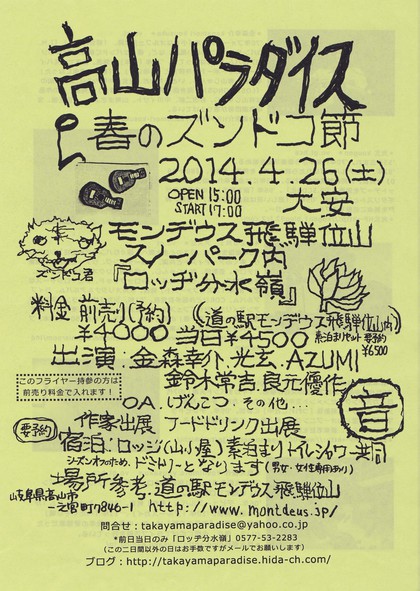 高山パラダイス
春のズンドコ節
2014.4.26(土)
OPEN 15:00
START 17:00
大安
モンデウス飛騨位山
スノーパーク内
『ロッヂ分水嶺』
ズンドコ君
料金 前売り(予約)
¥4000 当日¥4500
(道の駅モンデウス飛騨位山内)
素泊まりセット 要予約
¥6500
出演.金森幸介.光玄.AZUMI
鈴木常吉.良元優作
このフライヤー持参の方は
前売り料金で入れます!
OA.げんこつ.その他...
音
作家出展 フードドリンク出展
要予約
宿泊:ロッジ(山小屋)素泊まり トイレシャワー共同
シーズンオフのため、ドミトリーとなります(男女・女性専用あり)
場所参考:道の駅モンデウス飛騨位山
岐阜県高山市
一之宮町7846-1 http://www.montdeus.jp/
問合せ:takayamaparadise@yahoo.co.jp
*前日当日のみ「ロッヂ分水嶺」0577-53-2283
(この二日間以外の日はお手数ですがメールでお願いします)
ブログ:http://takayamaparadise.hida-ch.com/